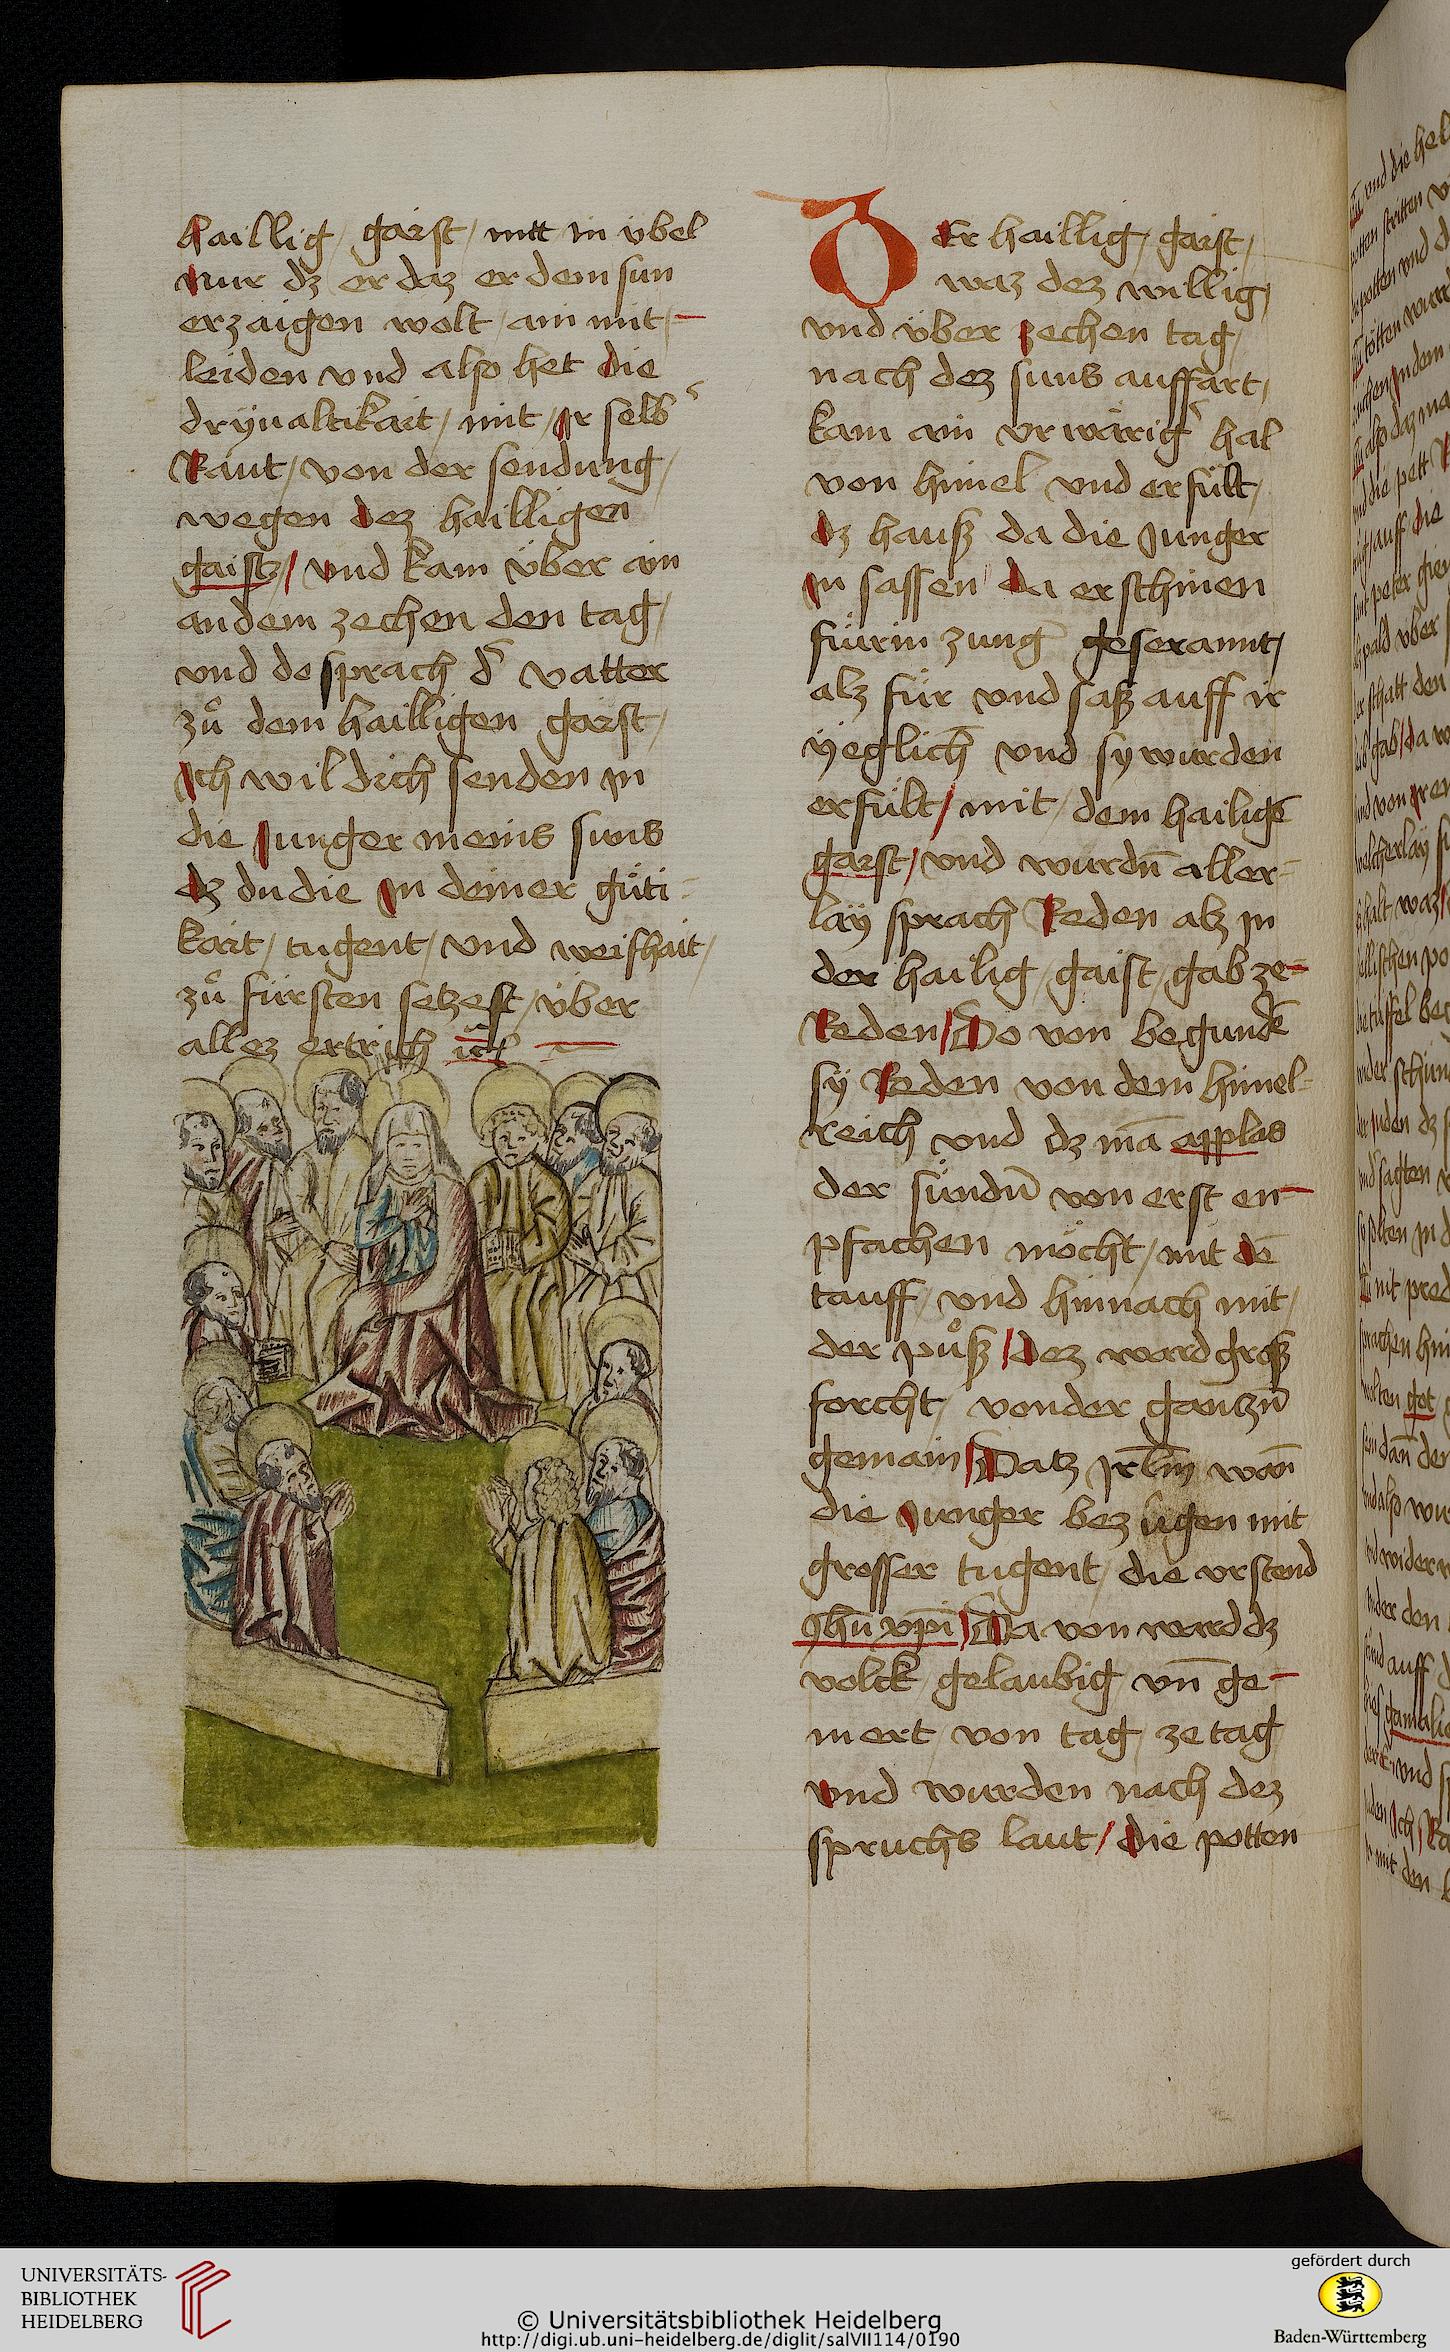 haillig / gaist / nitt in übel
nur dz er daz er dem sun
erzaigen wolt / ain mit /-
leiden vnd also het die
dryualtikait / mit / ir selb
Raut / von der sendung /
wegen dez hailligen
gaistz / vnd kam über ain
andem zechen den tag /
vnd do sprach d' vatter
zů dem hailligen gaist /
Ich wil dich senden in
die Junger meins suns
dz du die In deiner gůti=
kait / tugent / vnd weishait /
zů fürsten setzest / über
allez ertrich
DEr haillig / gaist /
waz dez willig /
vnd über zechen tag /
nach dez suns auffart /
kam ain vrwärig' hal
von himel vnd erfült /
dz hausz da die Junger
In sassen da erschinen
fürin zung
alz für vnd sasz auff ir
yeglich vnd sy wurden
erfült / mit / dem hailigē
gaist / vnd wurdn̄ aller=
läy sprach Reden alz in
der hailig / gaist / gab ze=
Reden / Do von begundē
sy Reden von dem himel=
reich vnd dz mā applas
der sündn̄ von erst en-
pfachen möcht / mit dē
tauff / vnd hinnach mit /
der půsz / dez ward grosz
forcht / von der gantzn̄
gemain / Datz Jrlm̄ wan̄
die Junger bezugen mit
grosser tugent / die vrstend
Jhū xp̄i / Da von ward dz
volck / gelaubig / vn̄ ge-
mert / von tag / ze tag
vnd wurden nach dez
spruchs laut / die potten
UNIVERSITÄTS-
BIBLIOTHEK
HEIDELBERG
© Universitätsbibliothek Heidelberg
http://digi.ub.uni-heidelberg.de/diglit/salVII114/0190
gefördert durch
Baden-Württemberg